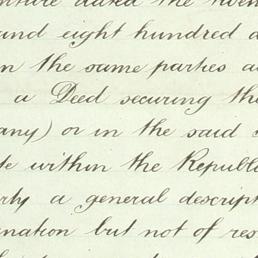 dated the
and eight hundred
in the same parties
a Deed securing the
any) or in the said
te within the Republ
rly a general descript
nation but not of res